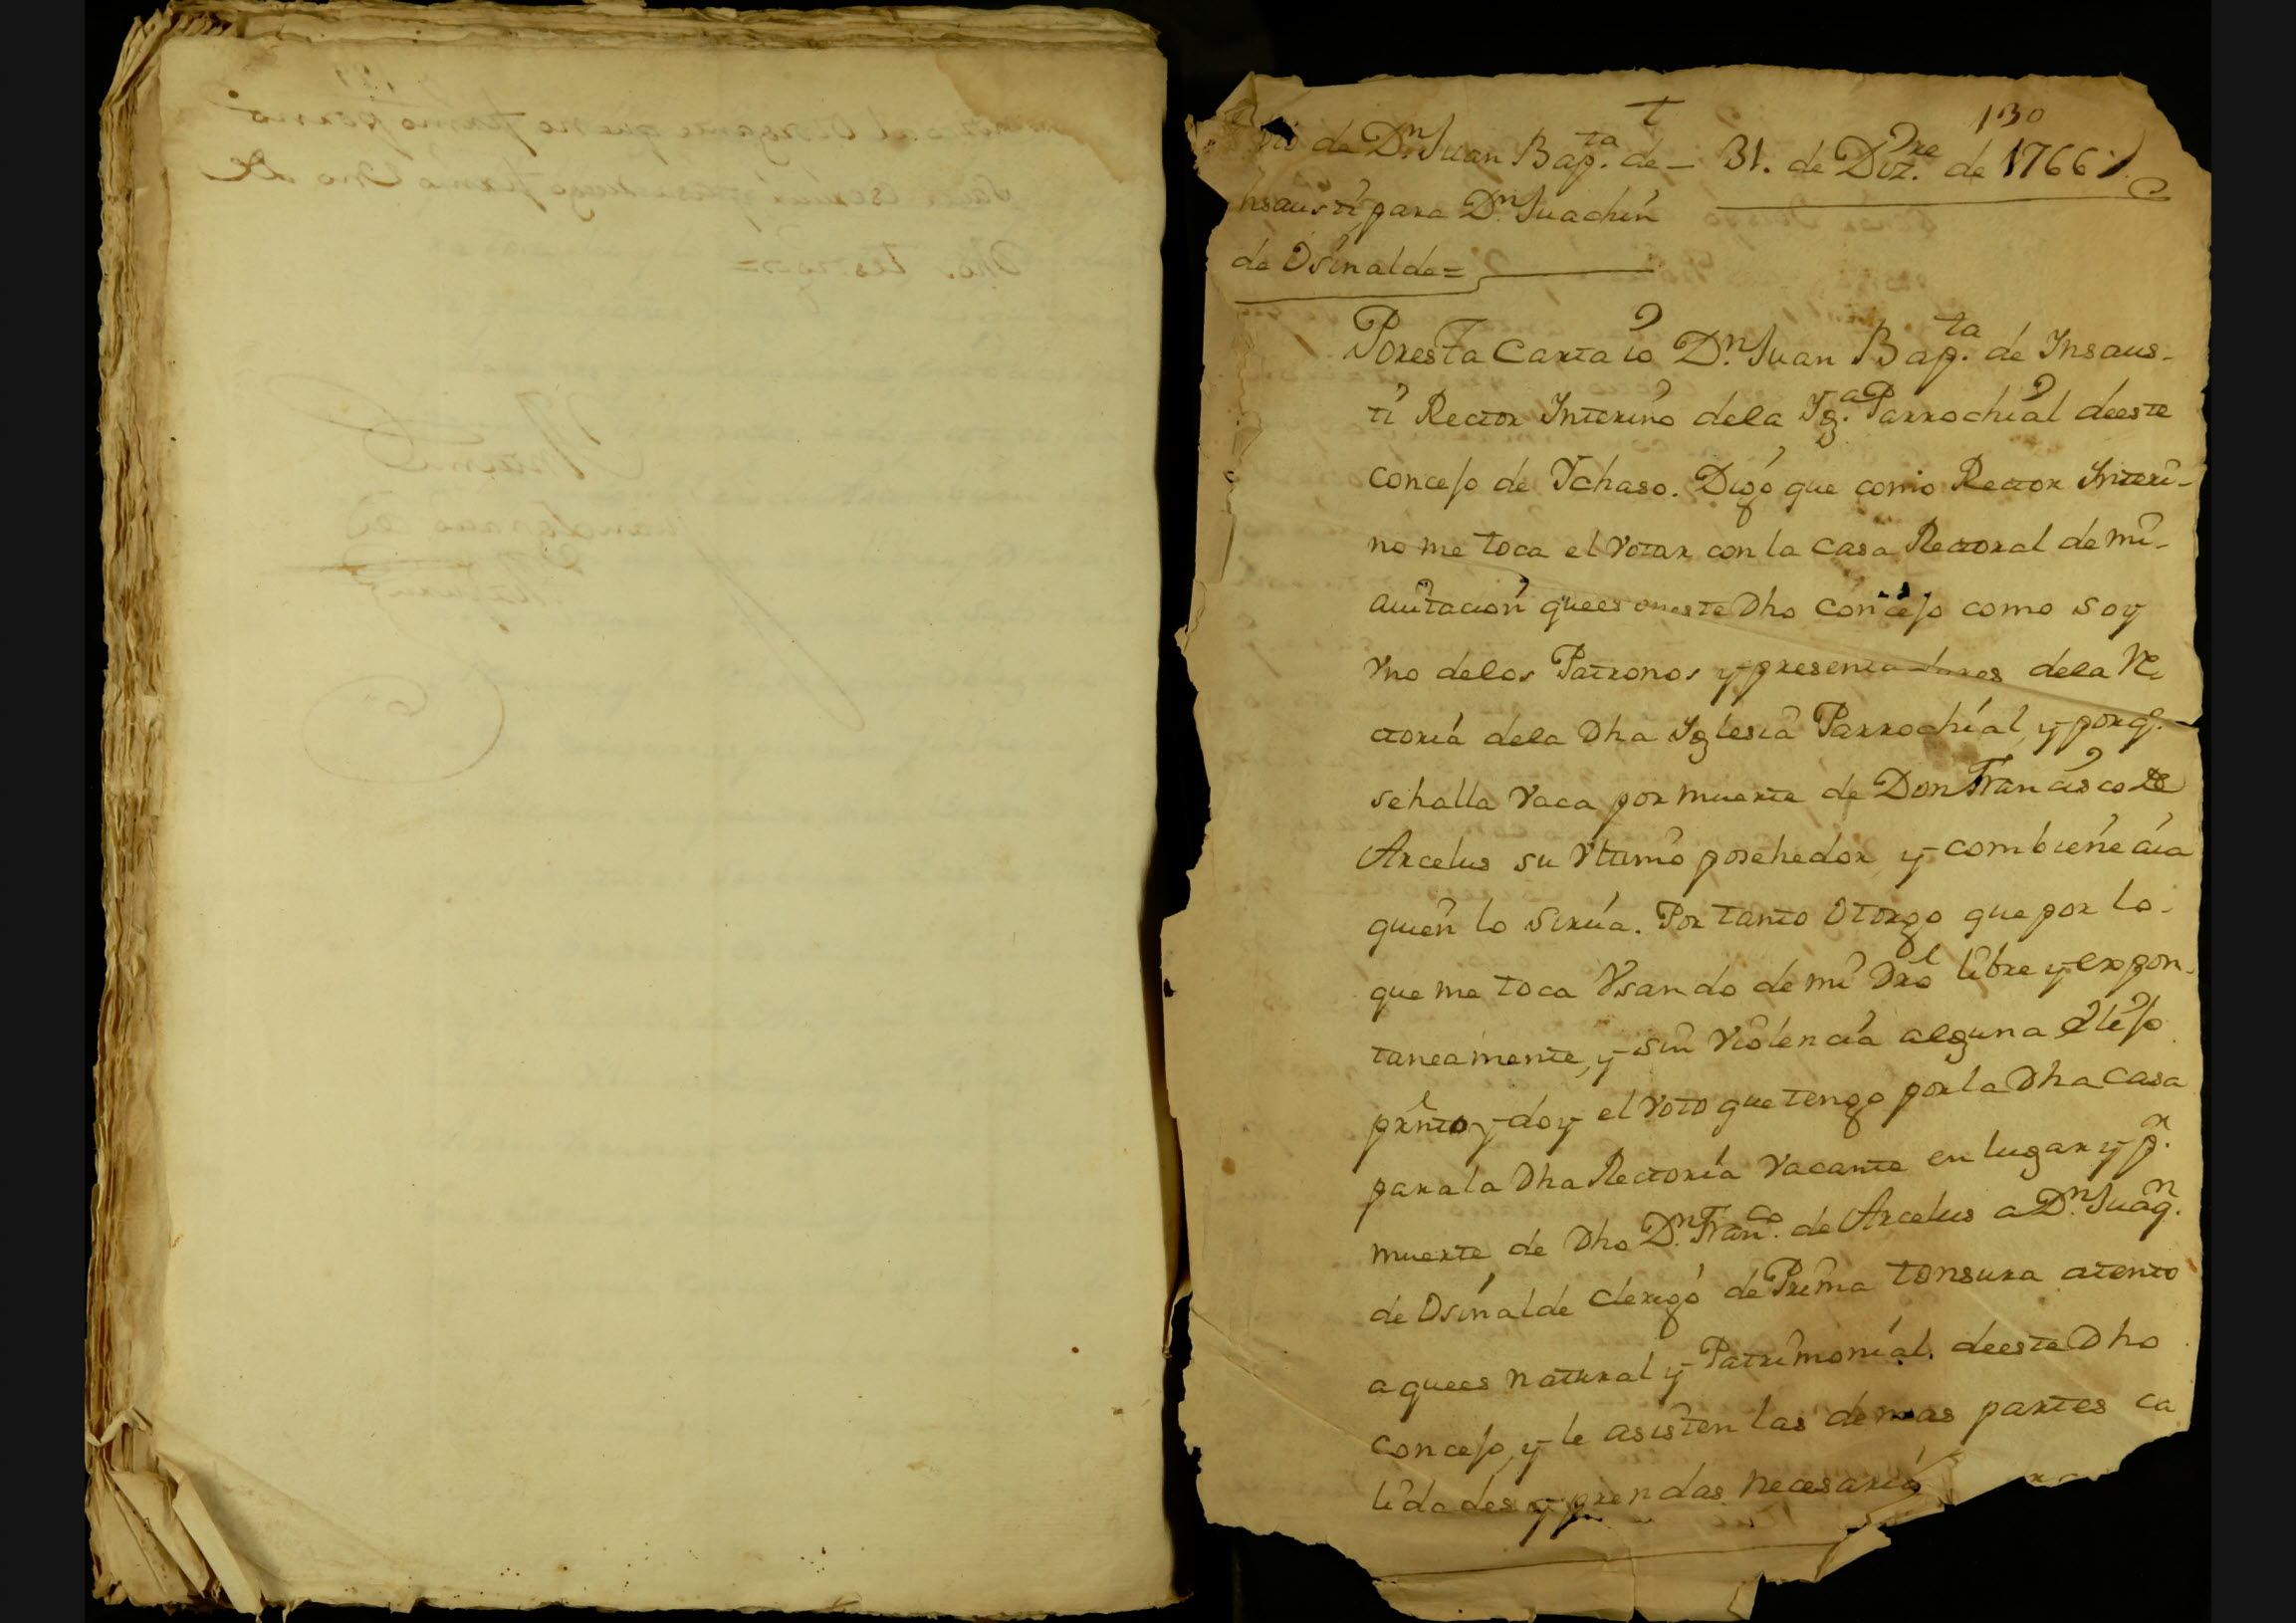 130
de Dn. Juan Bapta. de — 31. de Dizre. de 1766
Insausti, para Dn. Juachin
de Osinalde =
Poresta Carta io Dn. Juan Bapta. de Insaus-
ti Rector Interino dela Yga. Parrochial deeste
concejo de Ychaso. Digo que como Rector Interi-
no me toca el votar con la casa Rectoral de mi-
auitacion quees eneste Dho concejo como soy
vno delos Patronos y presentadores dela Re
ctoria dela Dha Yglesia Parrochial, y porq.
sehalla vaca por muerte de Don Francisco de
Arcelus su vltimo posehedor, y combiene aia
quien lo sirua. Por tanto Otorgo que por lo-
que me toca vsando de mi Dro libre y expon-
taneamente, y sin violencia alguna elijo
prnto y doy el voto que tengo por la Dha casa
para la Dha Rectoria vacante en lugar y pr.
muerte de Dho Dn. Franco. de Arcelus a Dn. Juaqn.
de Osinalde clerigo de Prima tonsura atento
a quees natural y Patrimonial deeste Dho
concejo, y le asisten las demas partes ca
lidades y prendas necesarias